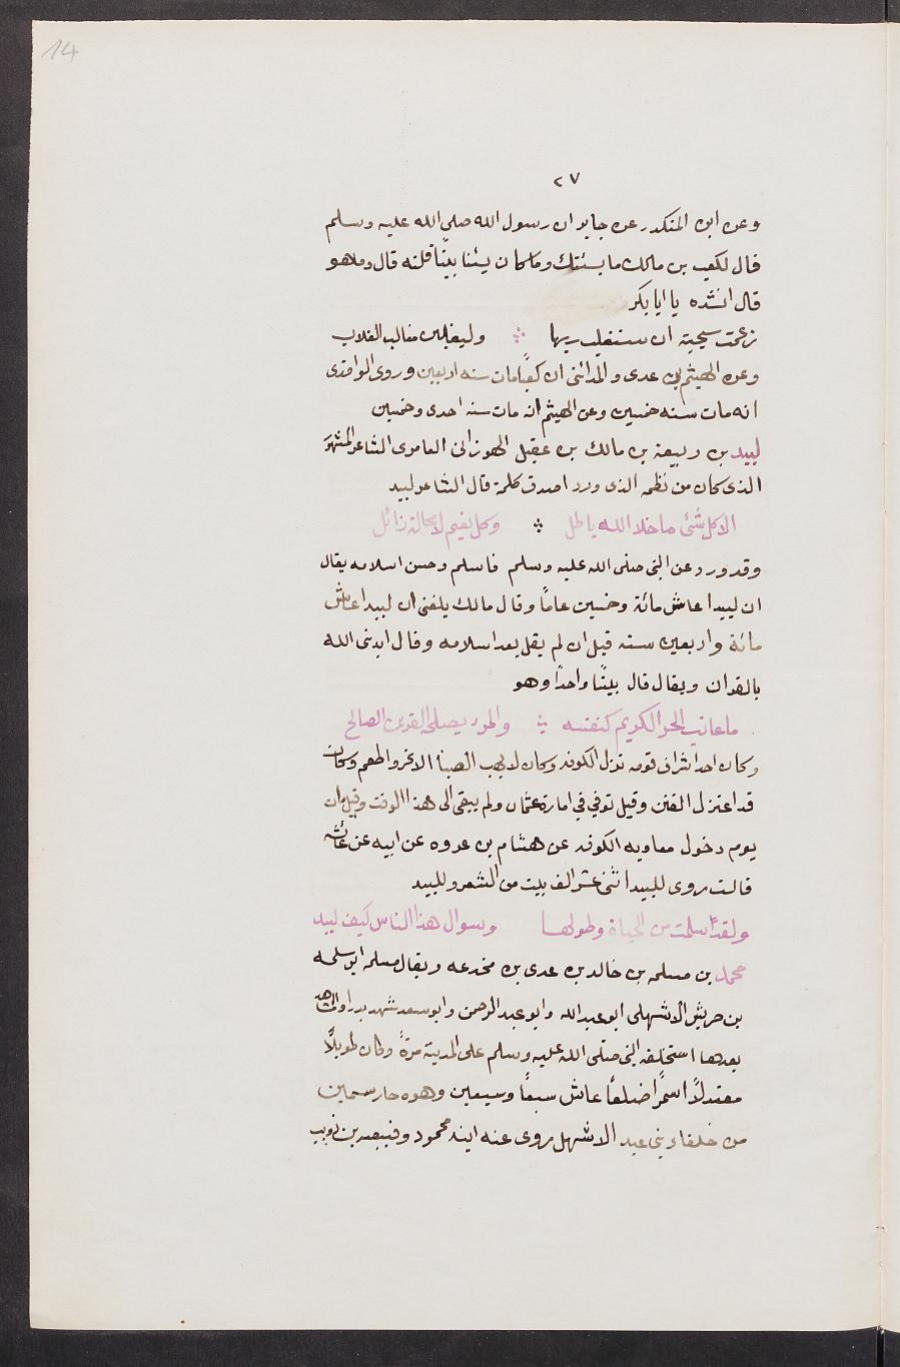 14
٢٧
وعن ابن المنكدر عن جابر ان رسول الله صلى الله عليه وسلم
قال لكعب بن مالك ما نسئتك وما كان يئنا بيتًا قلته قال وما هو
قال انشده يا ابا بكر
زعمت سخينة ان ستغلب ربها ⁘ وليغلبن مغالب الغلاب
وعن الهيثم بن عدى والمدائنى ان كعبًا مات سنه اربعين وروى الواقدى
انه مات سنه خمسين وعن الهيثم انه مات سنه احدى وخمسين
لبيد بن ربيعة بن مالك بن عقيل الهوزانى العامرى الشاعر المشهور
الذى كان من نظمه الذى ورد اصدق كلمة قال الشاعر لبيد
الا كل شئ ما خلا الله باطل ⁘ وكل نعيم لا محالة زائل
وقد ورد عن النبى صلى الله عليه وسلم فاسلم وحسن اسلامه يقال
ان لبيدا عاش مائة وخمسين عامًا وقال مالك بلغنى ان لبيدا عاش
مائة واربعين سنه قبل ان لم يقل بعد اسلامه وقال ابدنى الله
بالقران ويقال قال بيتًا واحدًا وهو
ما عاتب الحر الكريم كنفسه ⁘ والمرء يصلحه القرين الصالح
وكان احد اشراف قومه نزل الكوفه وكان لا يهب الصبا الا نحر واطعم وكان
قد اعتزل الفتن وقيل توفي في امارة عثمان ولم يبقى الى هذا الوقت وقيل مات
يوم دخول معاويه الكوفه عن هشام بن عروه عن ابيه عن عائشه
قالت روى للبيد اثنى عشر الف بيت من الشعر وللبيد
ولقد اسلمت من الحياة وطولها وسوال هذا الناس كيف لبيد
محمد بن مسلمه بن خالد بن عدى بن مخدعه ويقال مسلمه ابن سلمه
بن حريش الاشهلى ابو عبد الله وابو عبد الرحمن وابو سعد شهد بدرا والمشاهد
بعدها استخلفه النبى صلى الله عليه وسلم على المدينة مرةً وكان طويلًا
معتدلًا اسمرًا ضلعًا عاش سبعًا وسبعين وهوه حارسماين
من خلفاء بنى عبد الاشهل روى عنه ابنه محمود وقبيصه بن ذويب